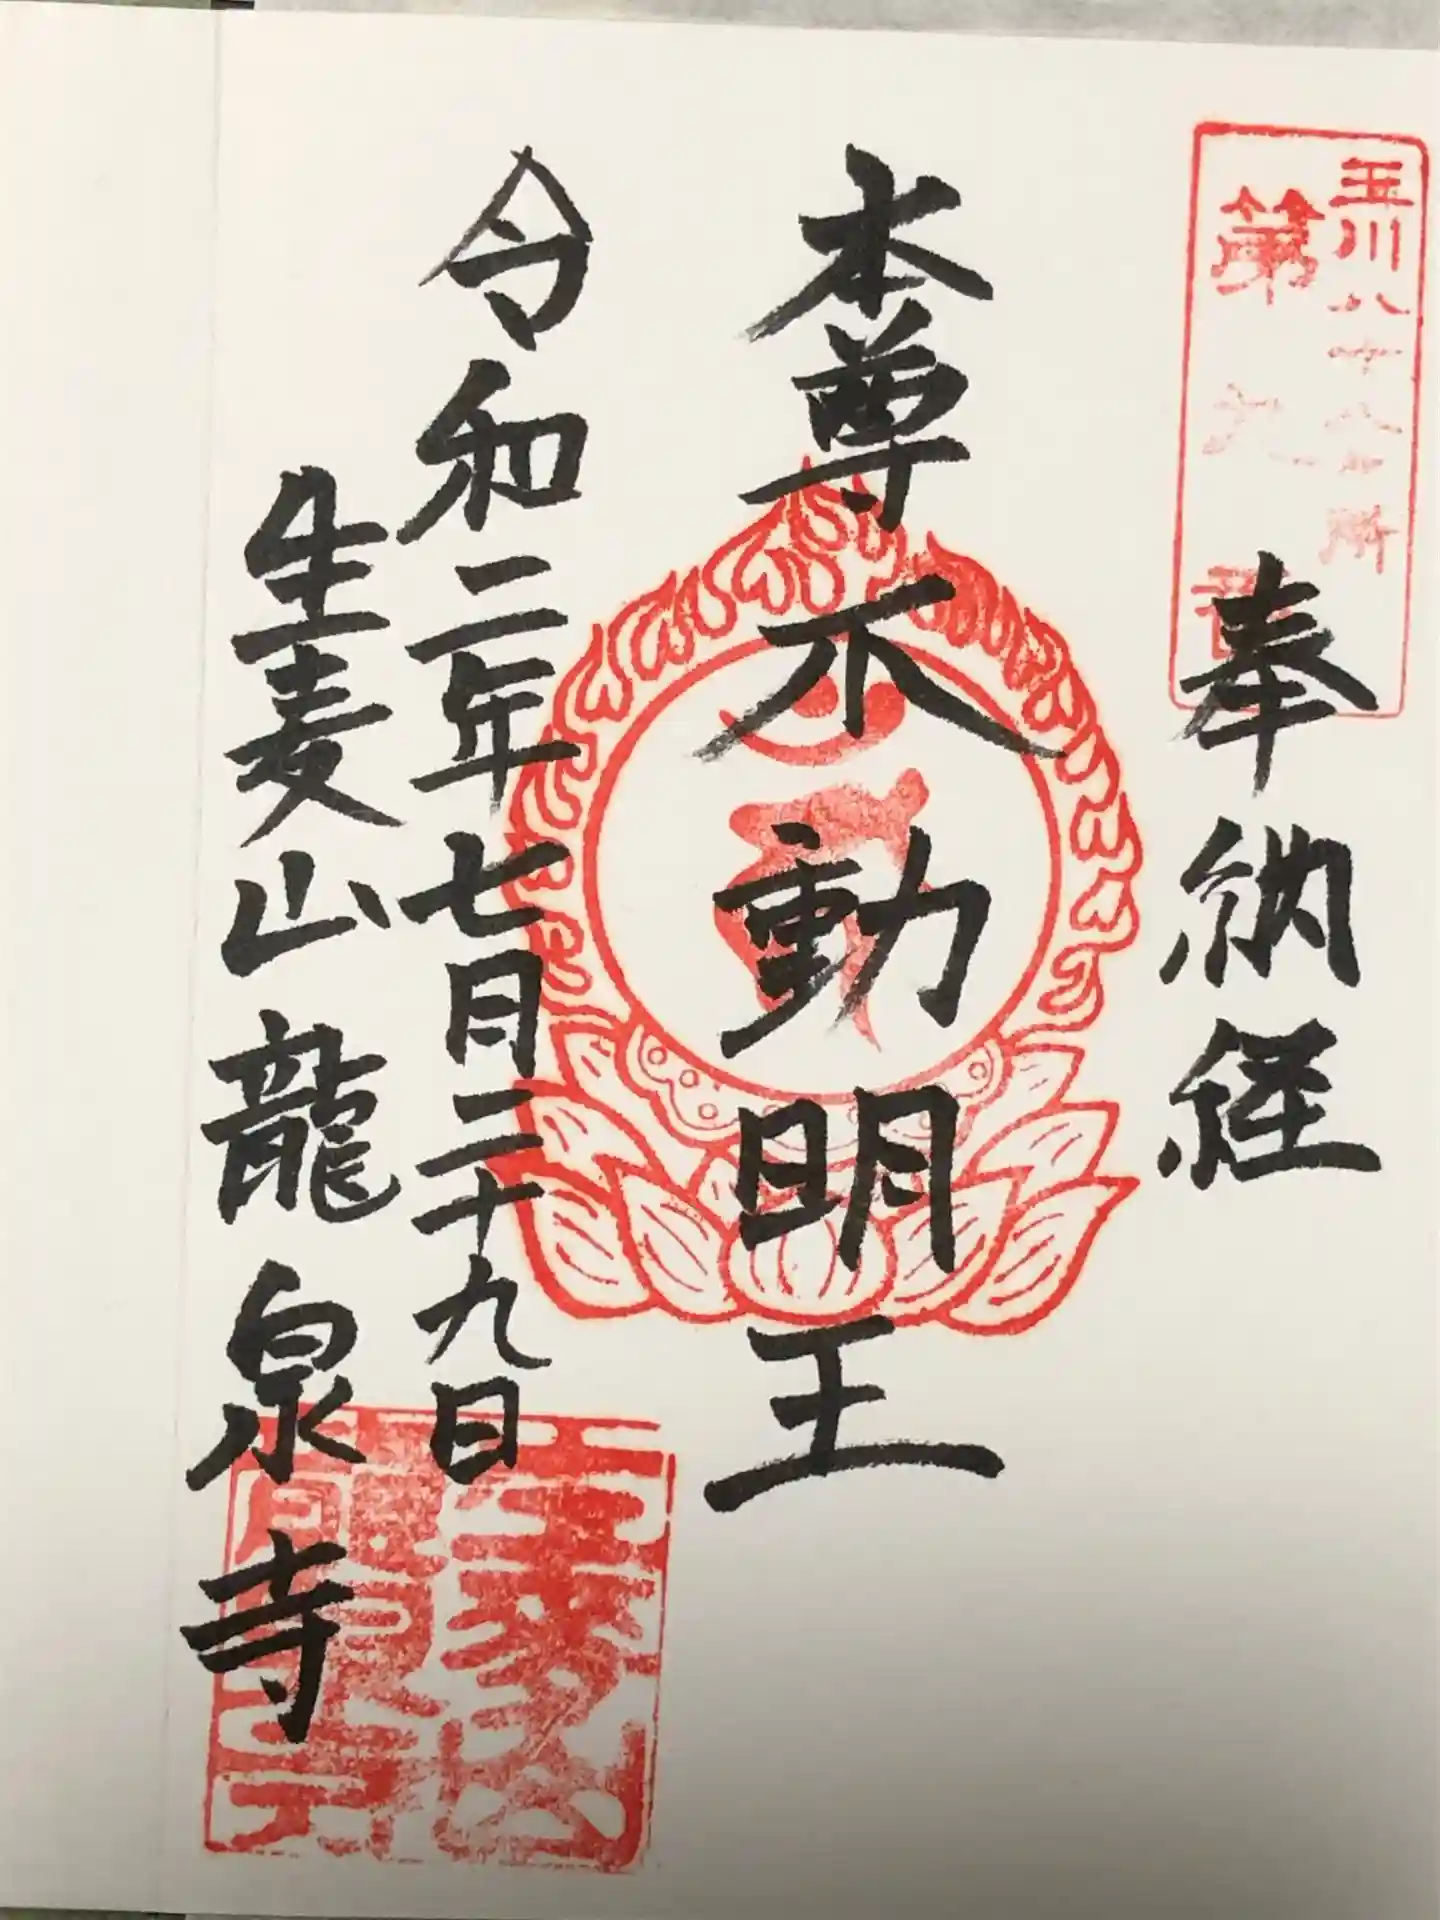 玉川八十八ヶ所
第九番
奉納経
本尊不動明王
令和二年七月二十九日
生麦山龍泉寺
生麦山
龍泉寺